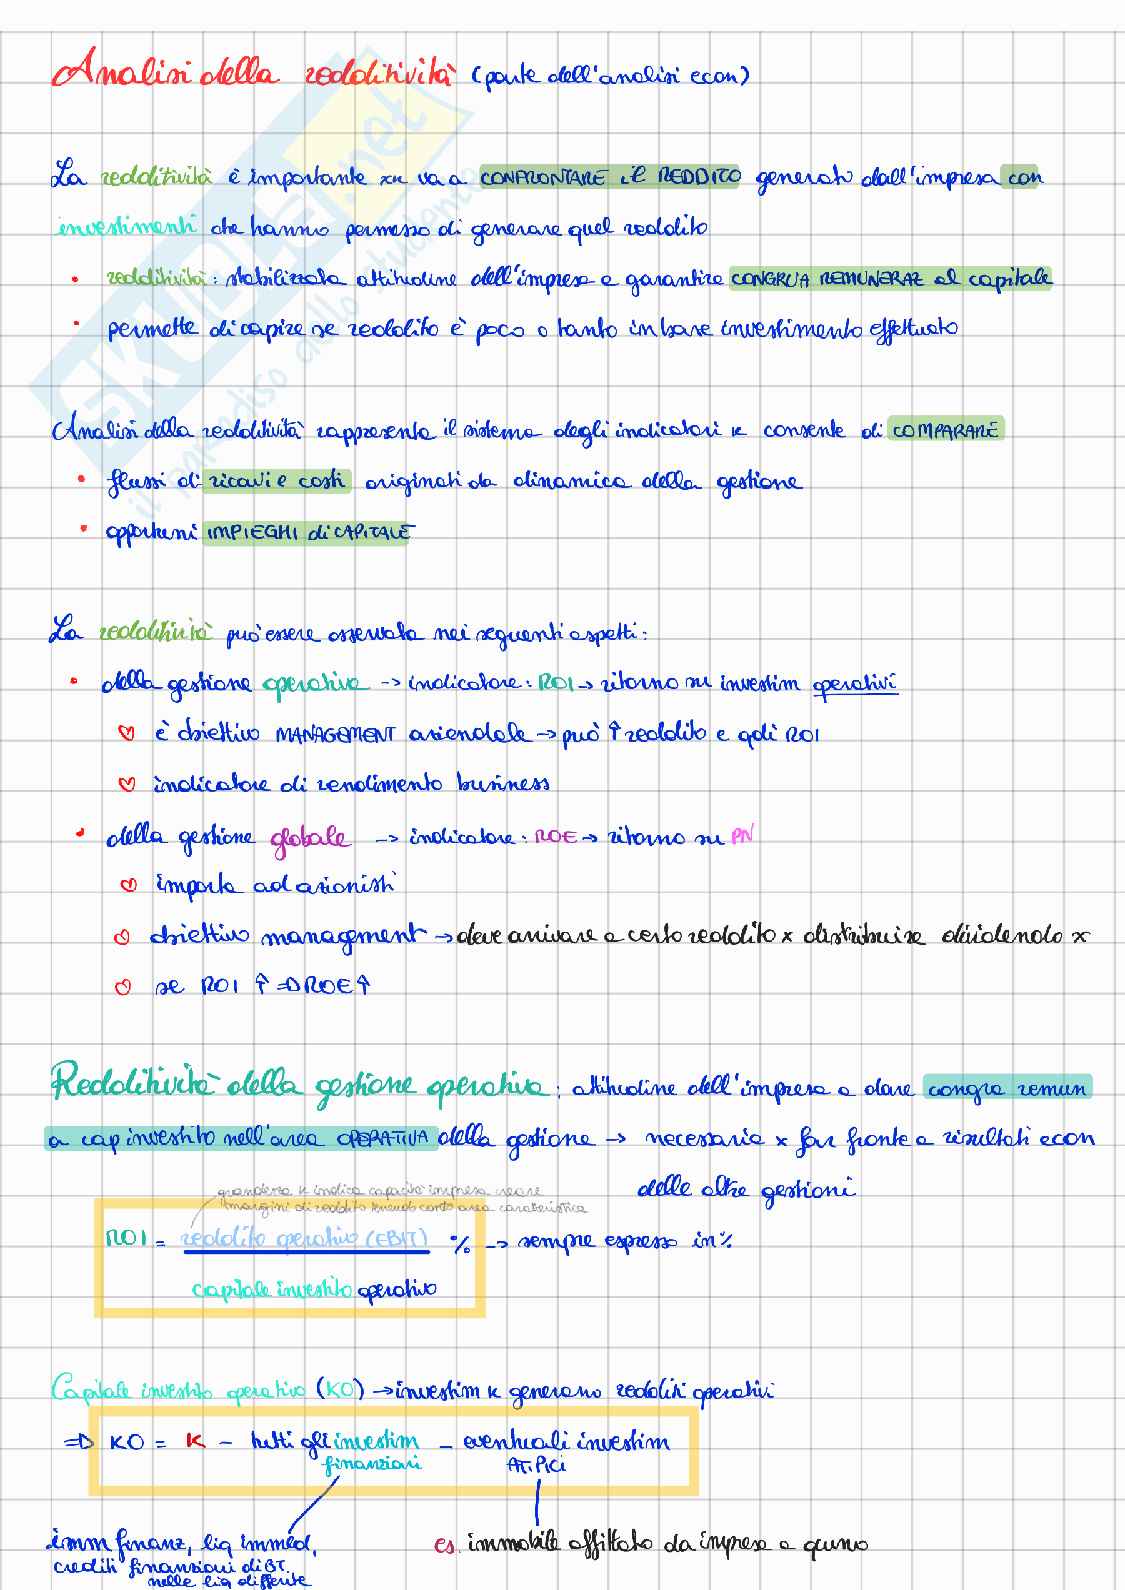 Analisi della redditività (parte dell'analisi econ)
La redditività è importante xk va a CONFRONTARE il REDDITO generato dall'impresa con
investimenti che hanno permesso di generare quel reddito
• redditività: stabilizzata attitudine dell'impresa a garantire CONGRUA REMUNERAZ al capitale
• permette di capire se reddito è poco o tanto in base investimento effettuato
Analisi della redditività rappresenta il sistema degli indicatori k consente di COMPARARE
• flussi di ricavi e costi originati da dinamica della gestione
• opportuni IMPIEGHI di CAPITALE
La redditività può essere osservata nei seguenti aspetti:
• della gestione operativa -> indicatore: ROI -> ritorno su investim operativi
è obiettivo MANAGEMENT aziendale -> può ↑ reddito e qdi ROI
indicatore di rendimento business
• della gestione globale -> indicatore: ROE -> ritorno su PN
importa ad azionisti
obiettivo management -> deve arrivare a certo reddito x distribuire dividendo x
se ROI ↑ => ROE ↑
Redditività della gestione operativa: attitudine dell'impresa a dare congra remun
a cap investito nell'area OPERATIVA della gestione -> necessaria x far fronte a risultati econ
delle altre gestioni
grandezza k indica capacità impresa creare
margini di reddito tenendo conto area caratteristica
ROI = reddito operativo (EBIT) % -> sempre espresso in %
capitale investito operativo
Capitale investito operativo (KO) -> investim k generano redditi operativi
=> KO = K - tutti gli investim - eventuali investim
finanziari ATIPICI
imm finanz, liq immed, es. immobile affittato da impresa a qcuno
crediti finanziari di BT
nelle liq differite
skuola.net
il paradiso dello studente